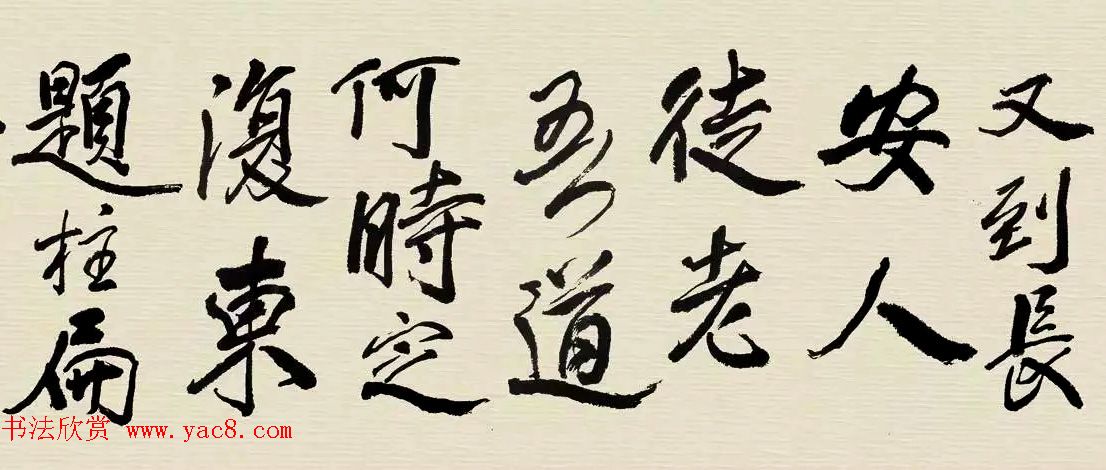 又到長
安人
徒老
吾道
何時定
復東
題柱扁
书法欣赏 www.yac8.com